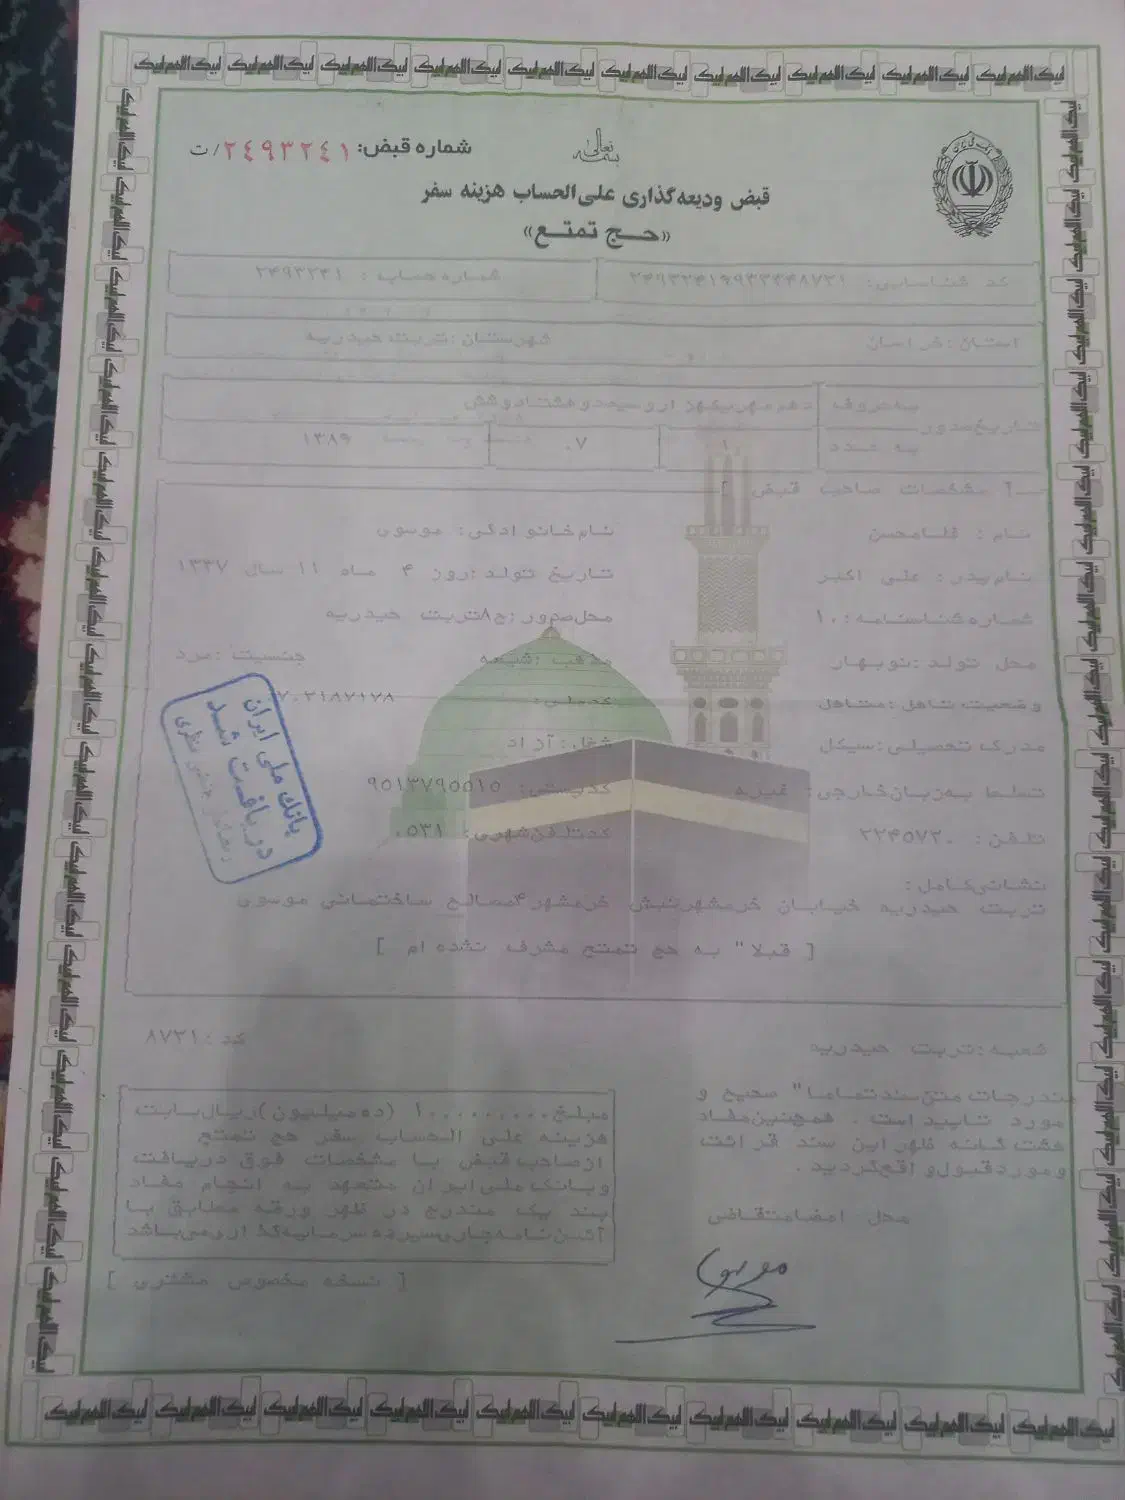 بسمه تعالی
شماره قبض: ۲٤۹۳۲٤۱/ت
قبض ودیعه گذاری علی الحساب هزینه سفر
«حج تمتع»
کد شناسایی:
شماره حساب : ۲۴۹۳۲۴۱
استان: خراسان
شهرستان: تربت حیدریه
تاریخ صدور
به حروف
دهم مهر یکهزار و سیصد و هشتاد و شش
به عدد
۰۷
[ مشخصات صاحب قبض ]
نام : غلامحسن
نام خانوادگی: موسوی
نام پدر: علی اکبر
تاریخ تولد: روز ۴ ماه ۱۱ سال ۱۳۳۷
شماره شناسنامه: ۱۰
محل صدور: ح۸تربت حیدریه
محل تولد: نوبهار
مذهب: شیعه
جنسیت: مرد
وضعیت تاهل: متاهل
کدملی:
مدرک تحصیلی: سیکل
شغل: آزاد
تسلط به زبان خارجی: غیره
کدپستی: ۹۵۱۳۷۹۵۵۱۵
تلفن: ۲۲۴۵۷۲۰
کدتلفن شهری: ۰۵۳۱
نشانی کامل:
تربت حیدریه خیابان خرمشهر نبش خرمشهر۴ مصالح ساختمانی موسوی
[ قبلا" به حج تمتع مشرف نشده ام ]
شعبه: تربت حیدریه
کد: ۸۷۳۱
مندرجات متن سند تماما" صحیح و
مورد تایید است . همچنین مفاد
هشت گانه ظهر این سند قرائت
و مورد قبول واقع گردید .
محل امضا متقاضی
مبلغ ۱۰,۰۰۰,۰۰۰ (ده میلیون) ریال بابت
هزینه علی الحساب سفر حج تمتع
از صاحب قبض با مشخصات فوق دریافت
و بانک ملی ایران متعهد به انجام مفاد
بند یک مندرج در ظهر ورقه مطابق با
آئین نامه جاری سپرده سرمایه گذاری می باشد
[ نسخه مخصوص مشتری ]
بانک ملی ایران
دریافت شد
لبیک اللهم لبیک